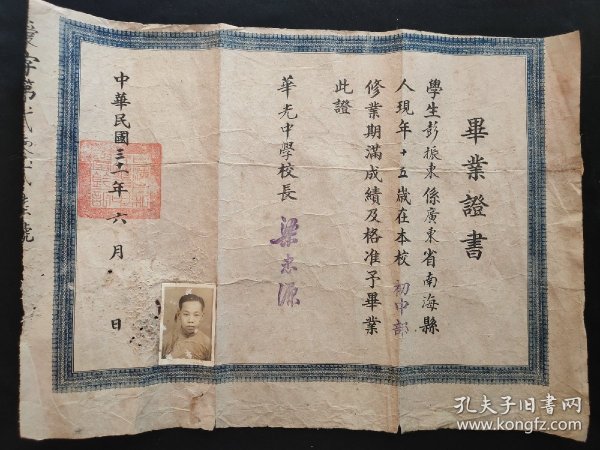 畢業證書
學生彭振東係廣東省南海縣
人現年十五歲在本校初中部
修業期滿成績及格准予畢業
此證
華光中學校長
梁忠源
中華民國三十一年六月 日
字第
號
孔夫子旧书网
www.kongfz.com